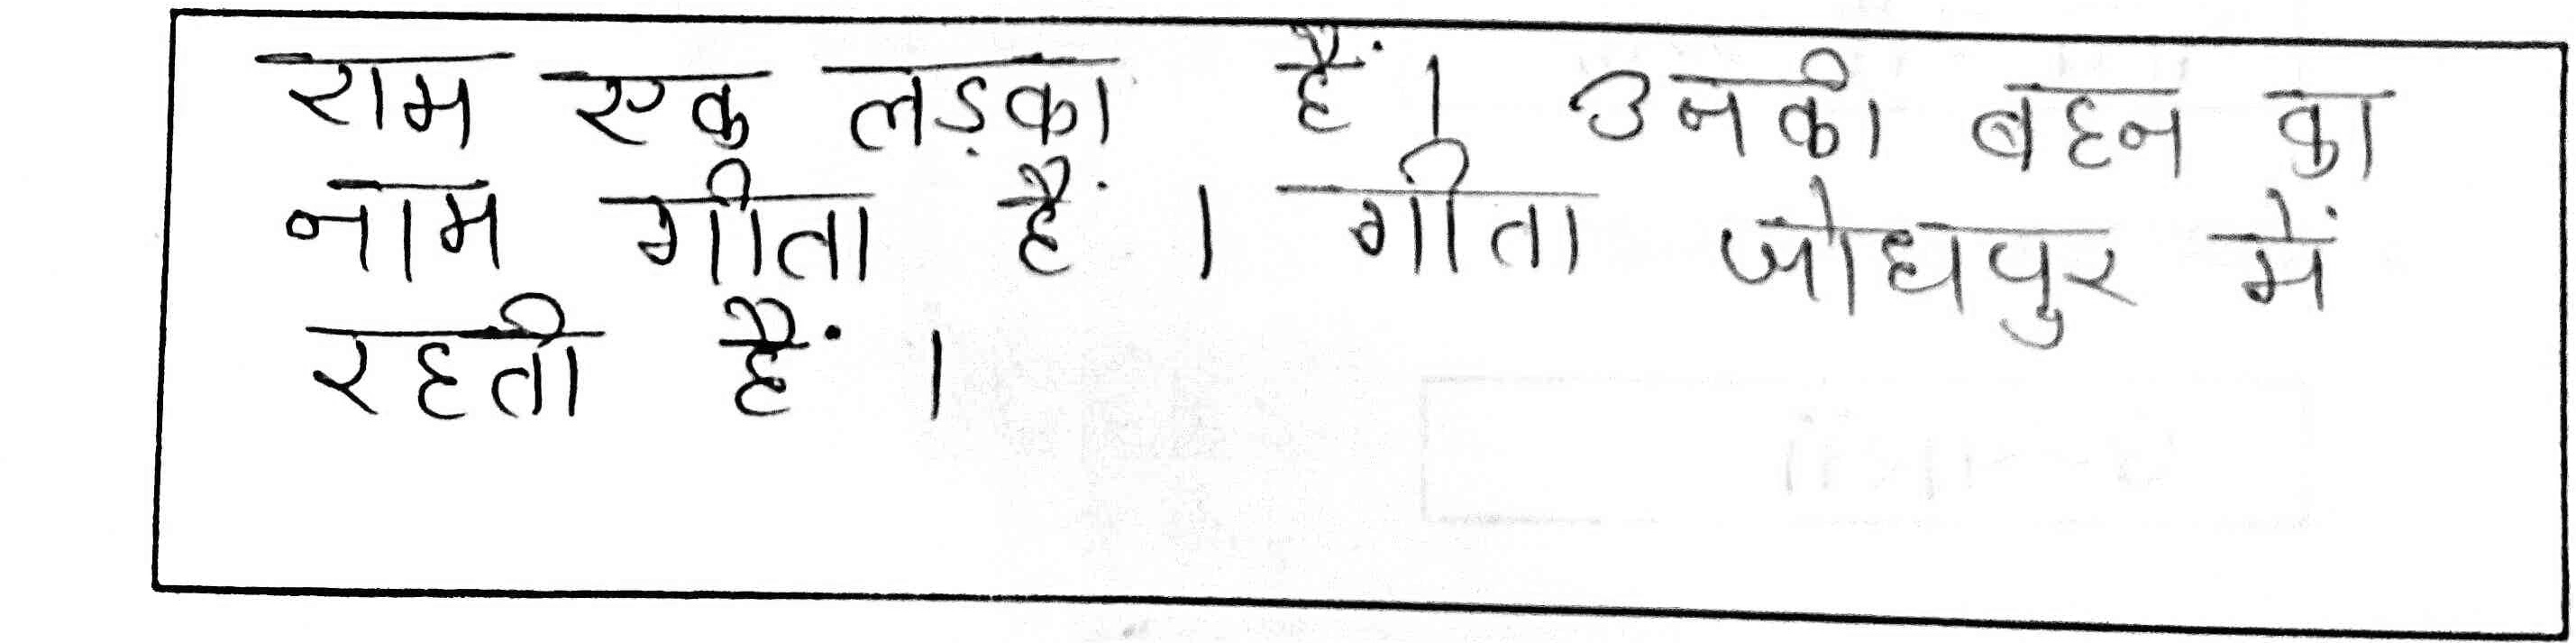 राम एक लड़का हैं। उनकी बहन का
नाम गीता हैं । गीता जोधपुर में
रहती हैं ।